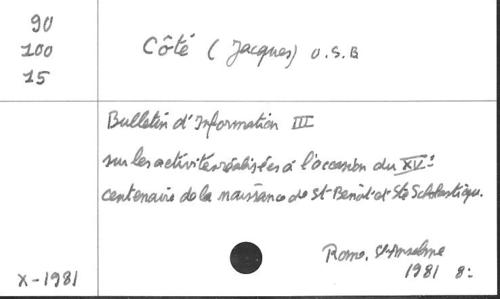 90
100
15
Côté (Jacques) O.S.B
Bulletin d'Information III
sur les activités réalisées à l'occasion du XVe
centenaire de la naissance de St-Benoît et Ste Scholastique.
Rome, St-Anselme
1981 8:
X-1981